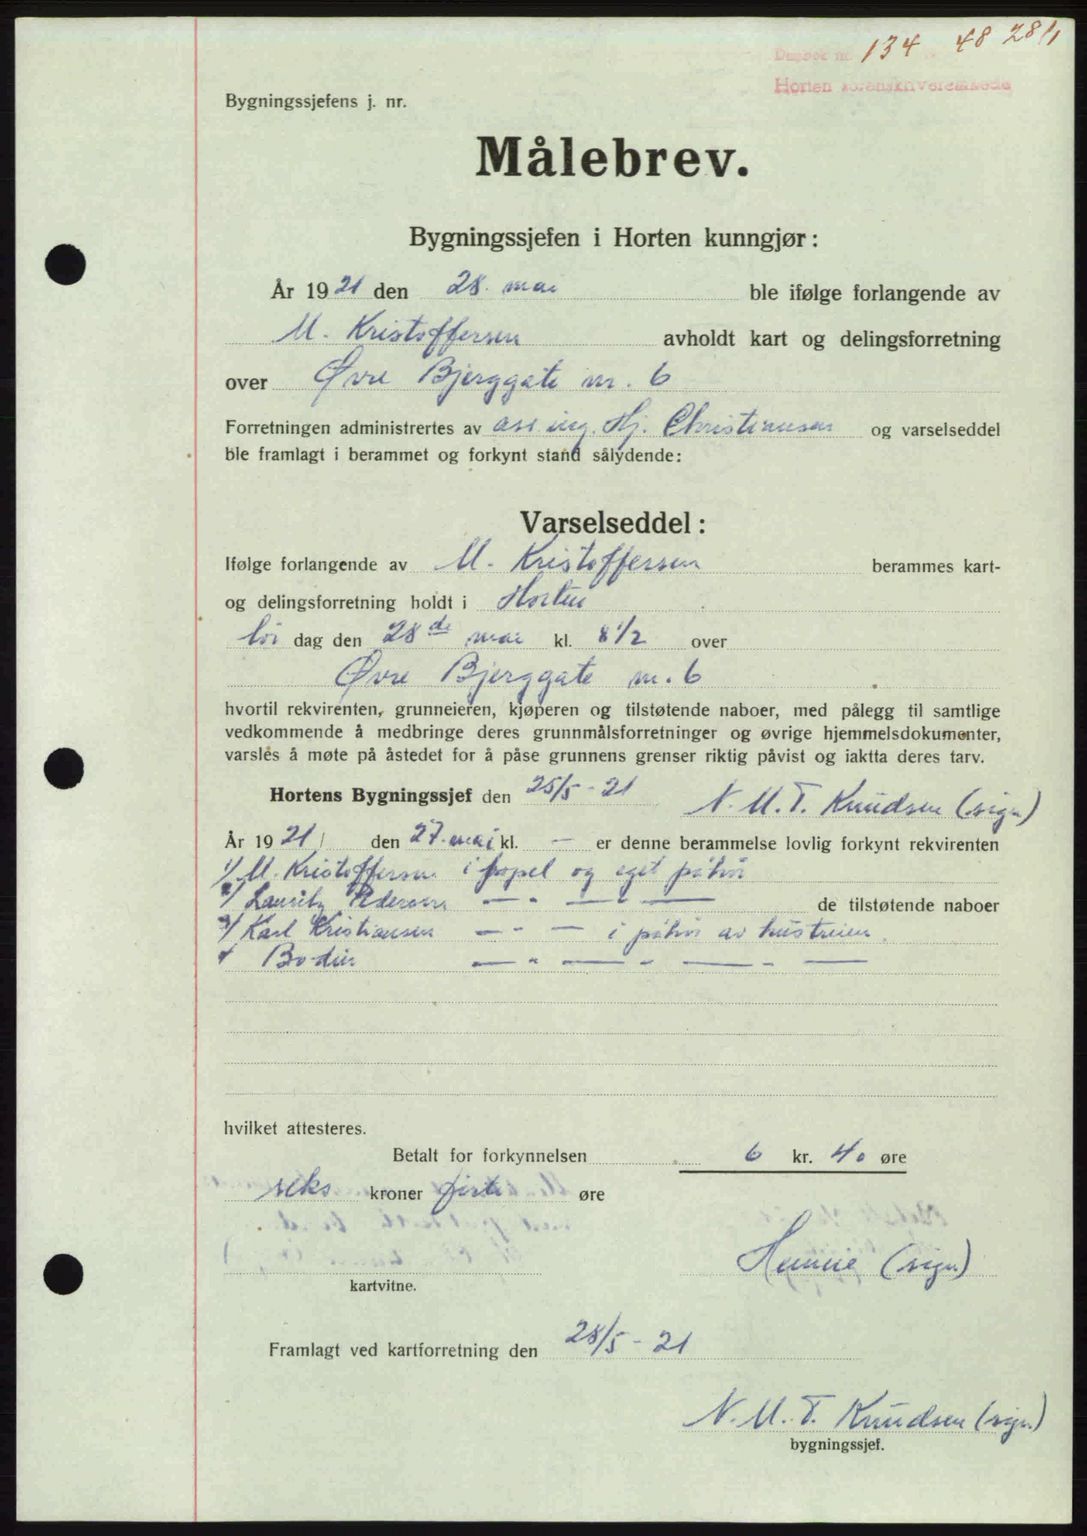 Dagbok nr. 134 48 28/1
Horten sorenskriverembede
Bygningssjefens j. nr.
Målebrev.
Bygningssjefen i Horten kunngjør:
År 1921 den 28. mai ble ifølge forlangende av
M. Kristoffersen avholdt kart og delingsforretning
over Øvre Bjerggate nr. 6
Forretningen administrertes av ass. ing. Hj. Christiansen og varselseddel
ble framlagt i berammet og forkynt stand sålydende:
Varselseddel:
Ifølge forlangende av M. Kristoffersen berammes kart-
og delingsforretning holdt i Horten
lør dag den 28de mai kl. 8 1/2 over
Øvre Bjerggate nr. 6
hvortil rekvirenten, grunneieren, kjøperen og tilstøtende naboer, med pålegg til samtlige
vedkommende å medbringe deres grunnmålsforretninger og øvrige hjemmelsdokumenter,
varsles å møte på åstedet for å påse grunnens grenser riktig påvist og iaktta deres tarv.
Hortens Bygningssjef den 25/5 - 21 N. M. T. Knudsen (sign)
År 1921 den 27. mai kl. — er denne berammelse lovlig forkynt rekvirenten
1/ M. Kristoffersen i bopel og eget påhør
2/ Lauritz Pedersen — " — " — de tilstøtende naboer
3/ Karl Kristiansen — " — i påhør av hustruen.
4 Bodin — " — " — " —
hvilket attesteres.
Betalt for forkynnelsen 6 kr. 40 øre
seks kroner førti øre
(sign)
kartvitne.
Framlagt ved kartforretning den 28/5 - 21
N. M. T. Knudsen (sign.)
bygningssjef.